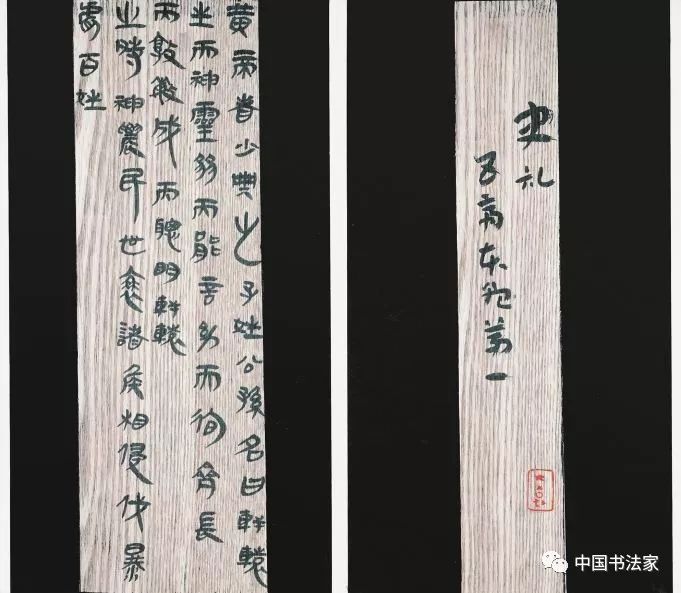 黃帝者少典之子姓公孫名曰軒轅
生而神靈弱而能言幼而徇齊長
而敦敏成而聰明軒轅
之時神農氏世衰諸侯相侵伐暴
虐百姓
史记
五帝本纪第一
中国书法家